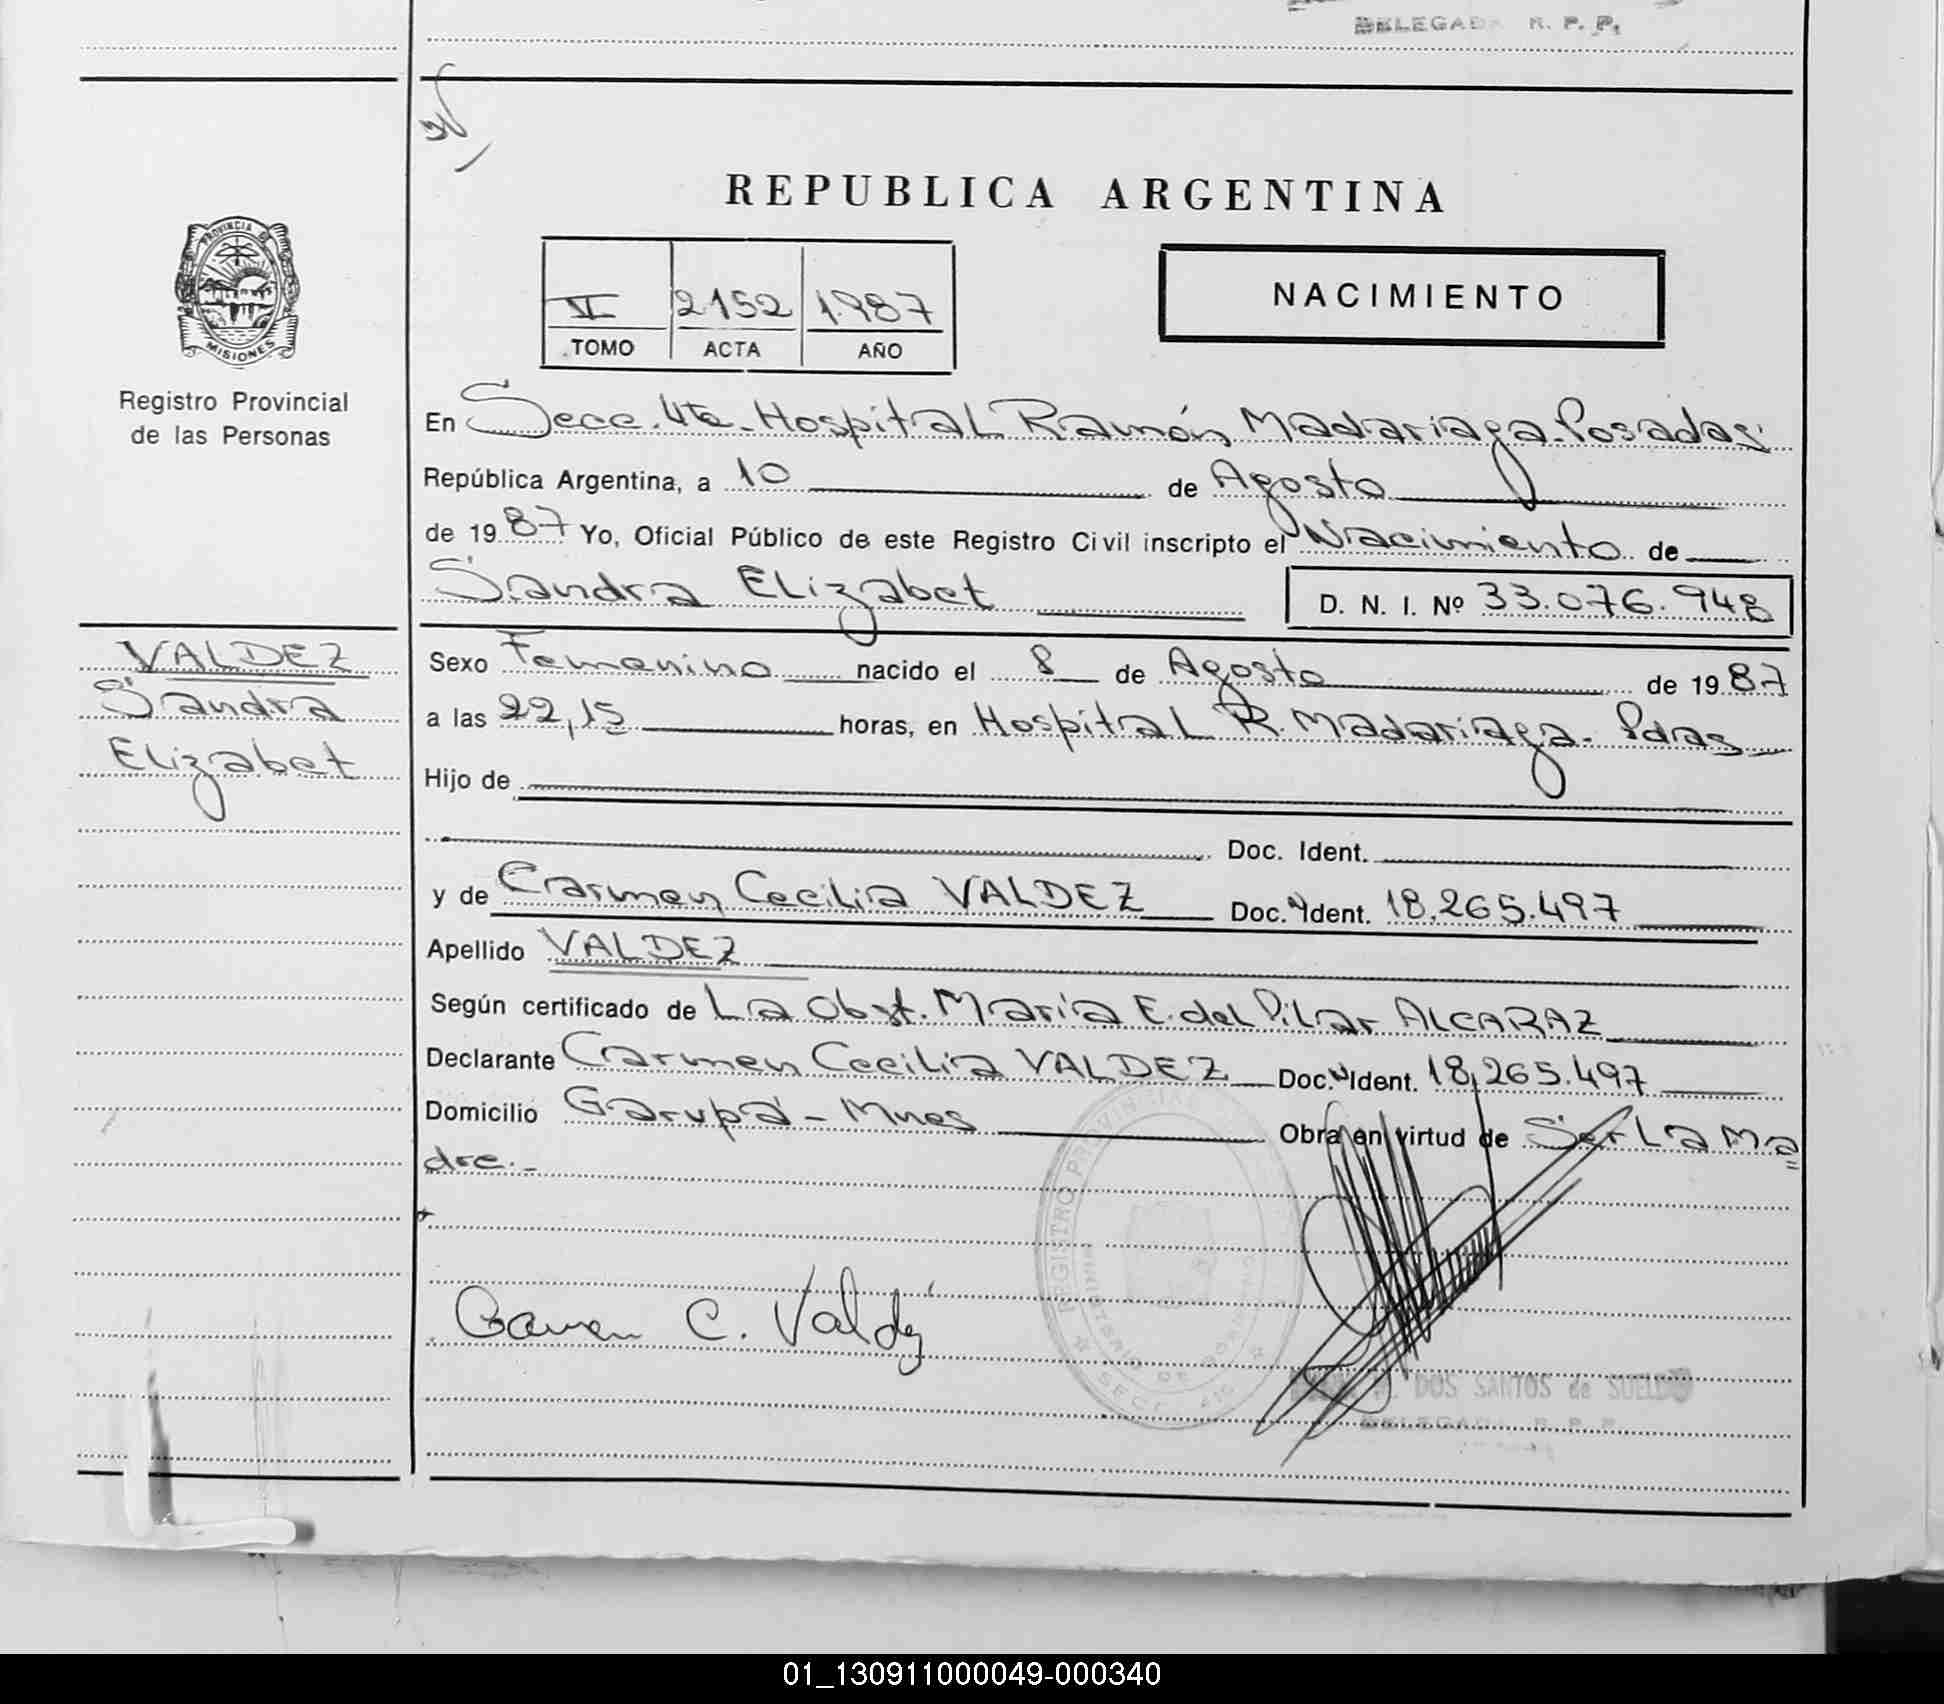 DELEGADA R. P. P.
REPUBLICA ARGENTINA
PROVINCIA DE
MISIONES
Registro Provincial
de las Personas
VI 2152 1.987
TOMO ACTA AÑO
NACIMIENTO
En Secc. 4ta. Hospital Ramón Madariaga. Posadas
República Argentina, a 10 de Agosto
de 1987 Yo, Oficial Público de este Registro Civil inscripto el Nacimiento de
Sandra Elizabet D. N. I. Nº 33.076.948
VALDEZ
Sandra
Elizabet
Sexo Femenino nacido el 8 de Agosto de 1987
a las 22,15 horas, en Hospital R. Madariaga. Pdas
Hijo de
Doc. Ident.
y de Carmen Cecilia VALDEZ Doc. Ident. 18.265.497
Apellido VALDEZ
Según certificado de La Obst. María E. del Pilar ALCARAZ
Declarante Carmen Cecilia VALDEZ Doc. Ident. 18,265.497
Domicilio Garupá - Mnes Obra en virtud de Ser La Ma
dre.-
Carmen C. Valdez
REGISTRO PROVINCIAL
MINISTERIO DE GOBIERNO
SECC.
DOS SANTOS de SUELDO
DELEGADA R. P. P.
01_130911000049-000340